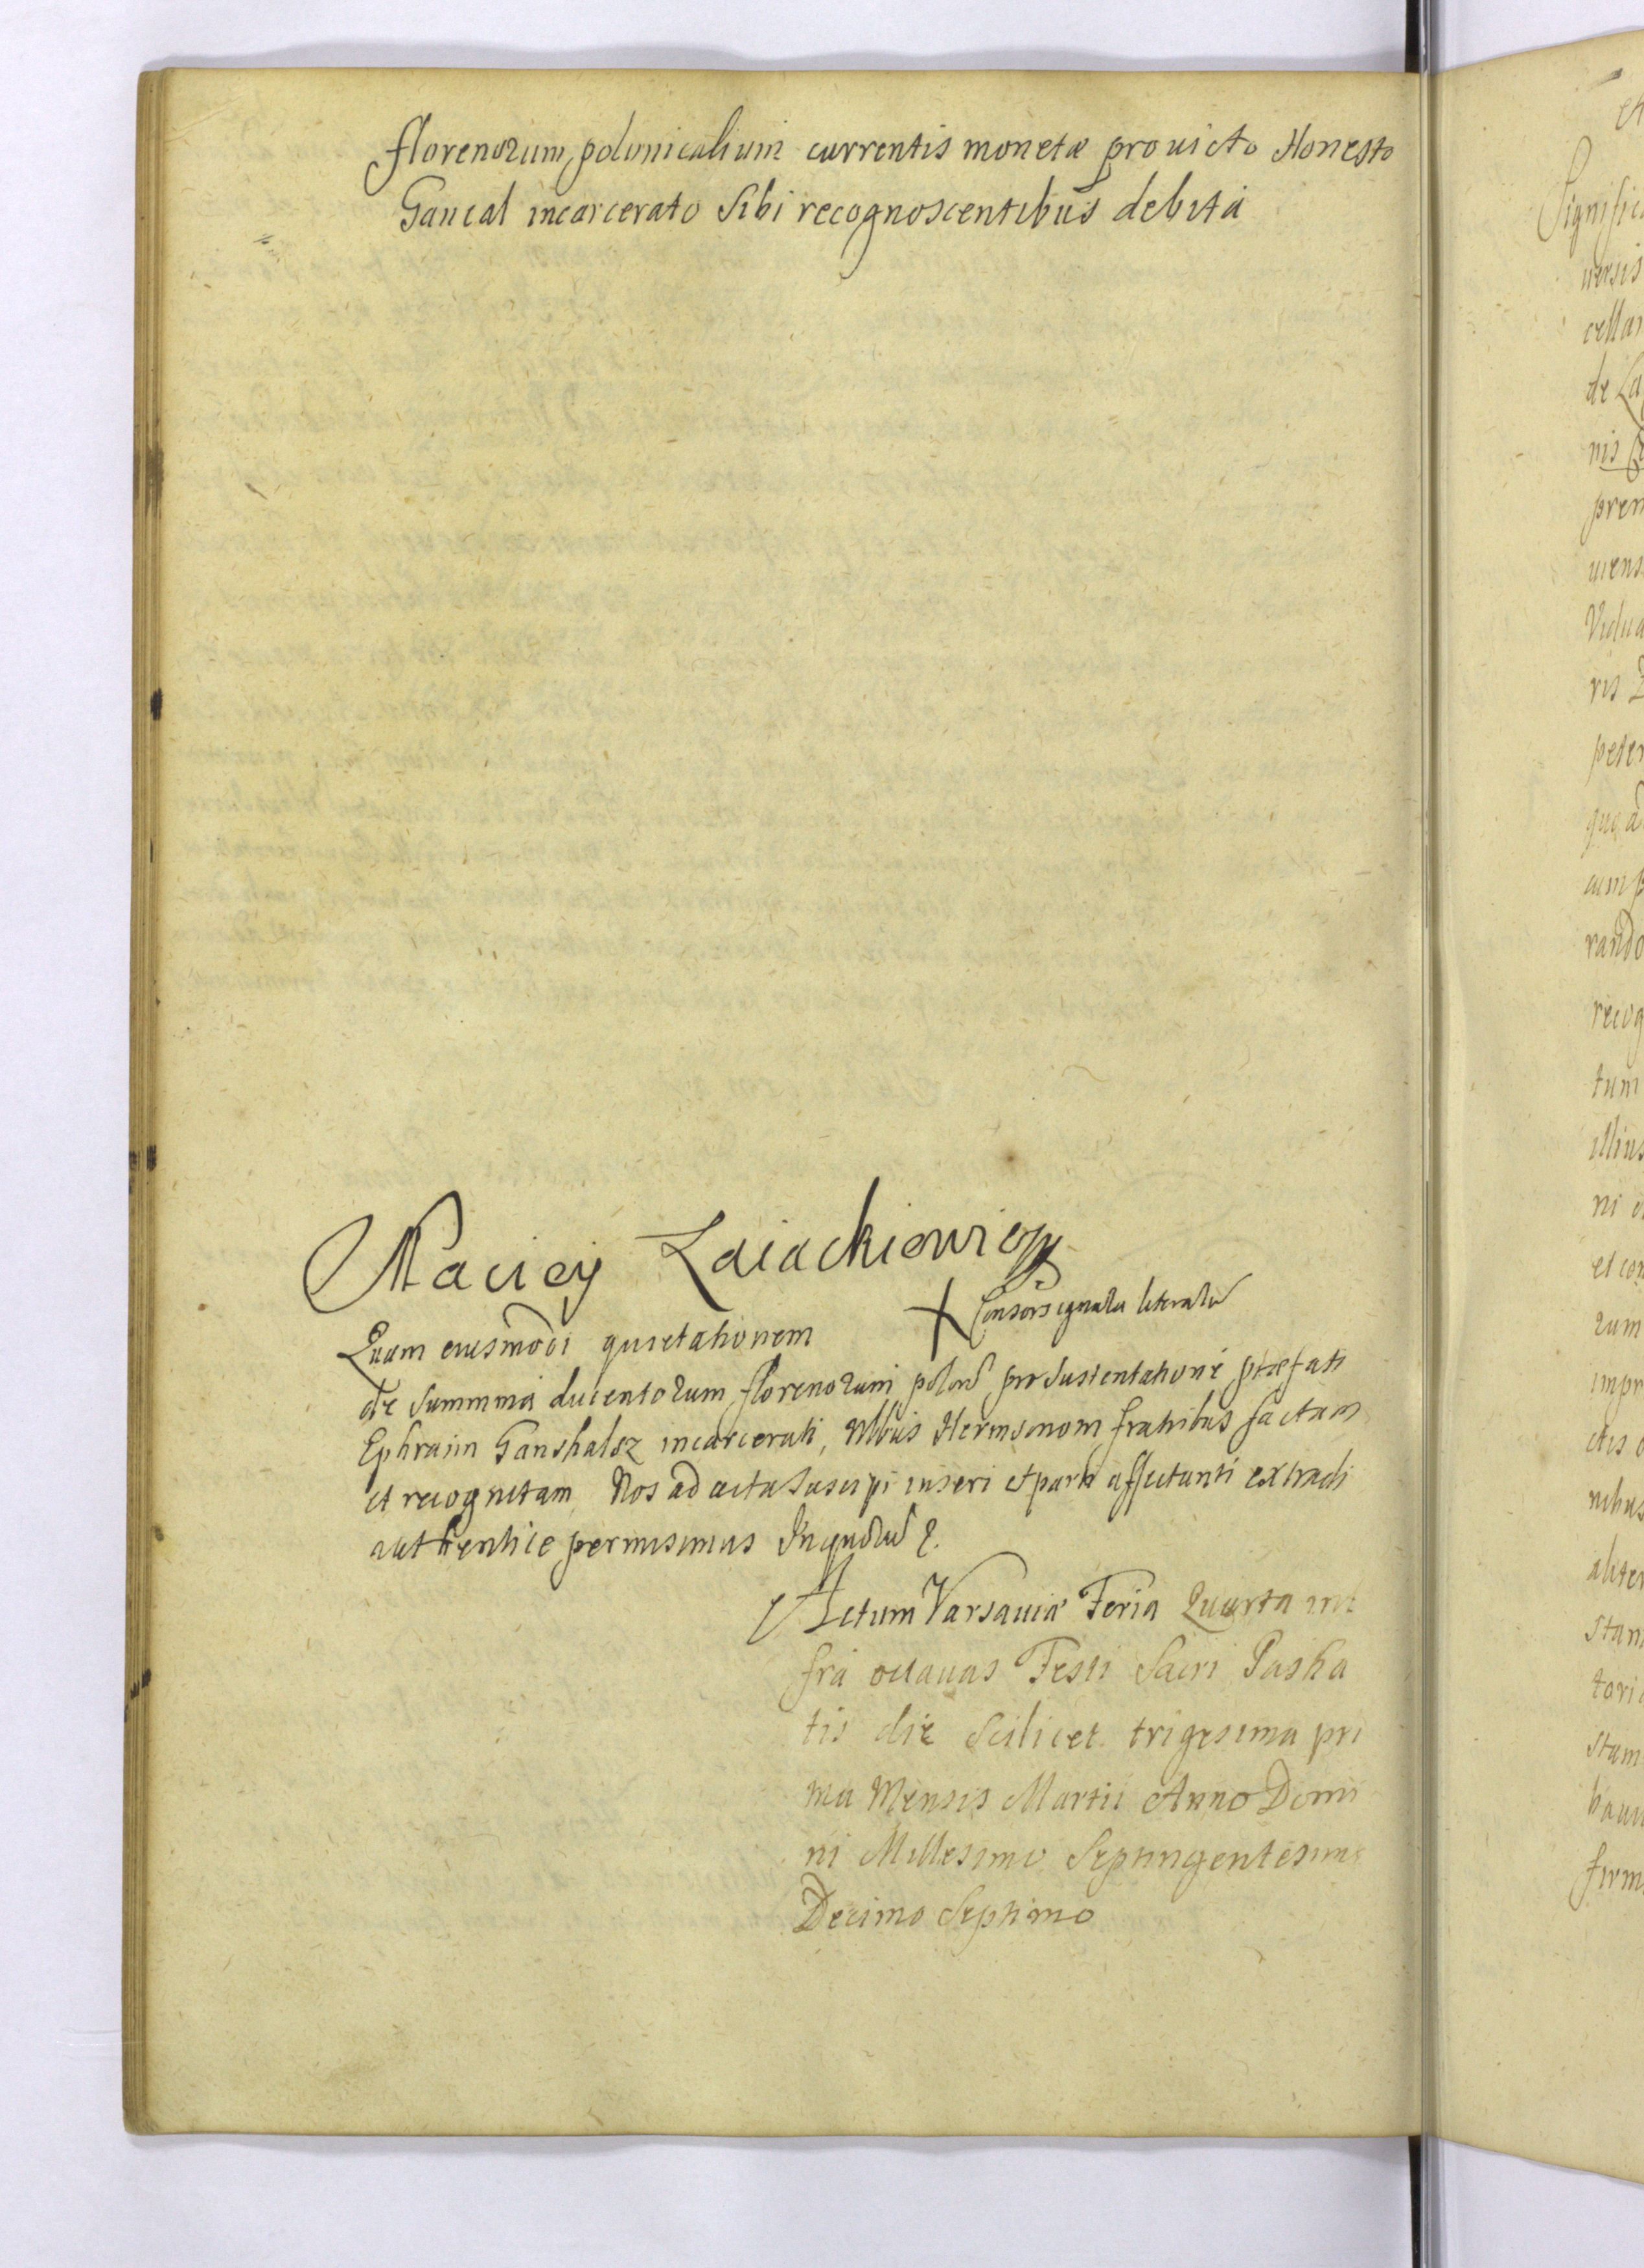 florenorum polonicalium currentis monetæ pro victo Honesto
Gancal incarcerato Sibi recognoscentibus debita
Maciey Zaiackiewicz
X Consors ignara literarũ
Quam eiusmodi quietationem
de summa ducentorum florenorum polonĩ pro sustentatione præfati
Ephraim Ganshalsz incarcerati, fratribus factam
et recognitam Nos ad acta suscipi inseri et parti affectanti extradi
authentice permisimus
Actum Varsaviæ Feria Quarta in
fra octavas Festi Sacri Pasha
tis die Scilicet trigesima pri
ma Mensis Martii Anno Domi
ni Millesimo Septingentesimo
Decimo Septimo
et
Signific
versis
cellar
de La
nis
pren
viens
Vidua
ris
peter
rando
recog
tum
illius
ni
et con
rum
impr
nibus
aliter
stan
tori
stam
firm